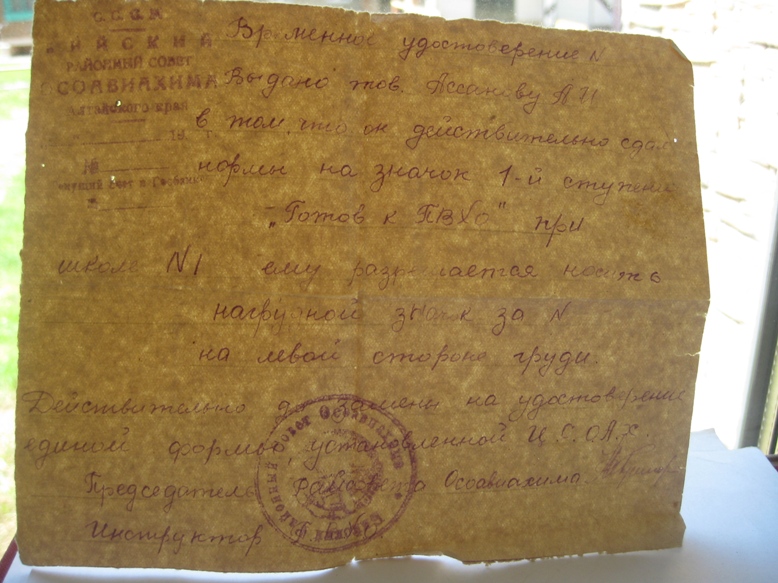 С.С.С.Р.
РАЙОННЫЙ СОВЕТ
ОСОАВИАХИМА
Алтайского края
19 г.
№
Временное удостоверение N
Выдано тов. Ассанову А И
в том, что он действительно сдал
нормы на значок 1-й ступени
„Готов к ПВХО" при
школе N1 ему разрешается носить
нагрудной значок за N
на левой стороне груди.
Действительно до замены на удостоверение
единой формы, установленной Ц.С.ОАХ.
Председатель райсовета Осоавиахима.
Инструктор
Районный Совет Осоавиахима